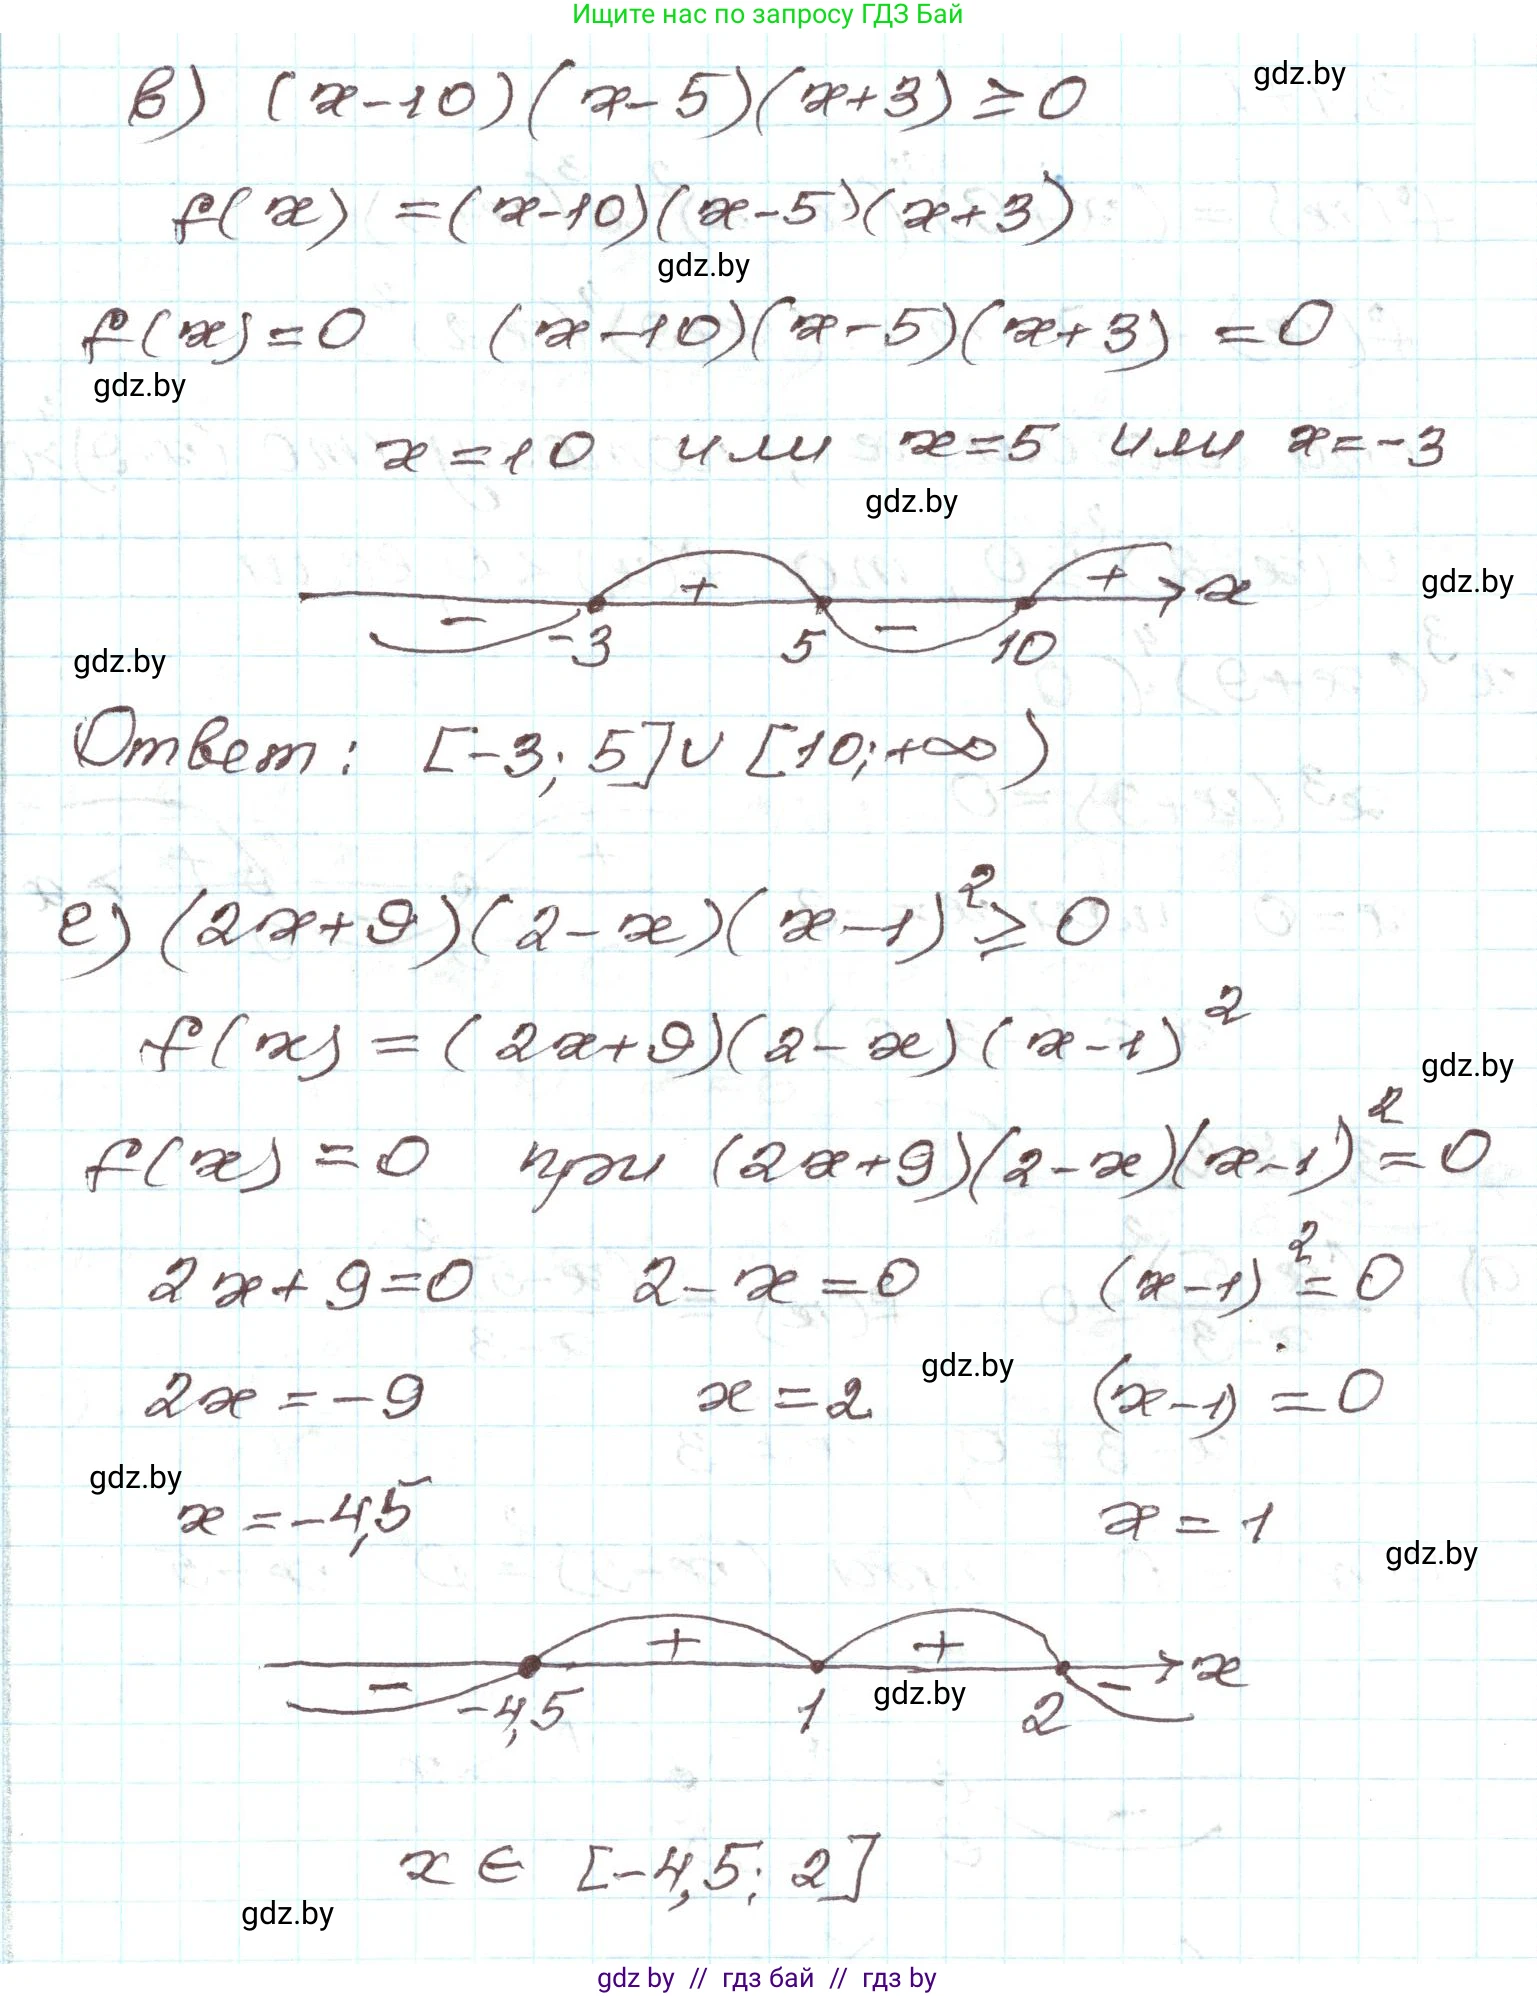 Ищите нас по запросу ГДЗ Бай
в) (x-10)(x-5)(x+3) ≥ 0
gdz.by
f(x) = (x-10)(x-5)(x+3)
gdz.by
f(x) = 0 (x-10)(x-5)(x+3) = 0
gdz.by
x = 10 или x = 5 или x = -3
gdz.by
+ + x
gdz.by
- -3 5 - 10
gdz.by
Ответ: [-3; 5] ∪ [10; +∞)
е) (2x+9)(2-x)(x-1)² ≥ 0
f(x) = (2x+9)(2-x)(x-1)²
gdz.by
f(x) = 0 при (2x+9)(2-x)(x-1)² = 0
2x+9=0 2-x=0 (x-1)² = 0
gdz.by
2x = -9 x = 2 (x-1) = 0
gdz.by
x = -4,5 x = 1
gdz.by
+ + x
- -4,5 1 gdz.by 2 -
x ∈ [-4,5; 2]
gdz.by
gdz by // гдз бай // гдз by